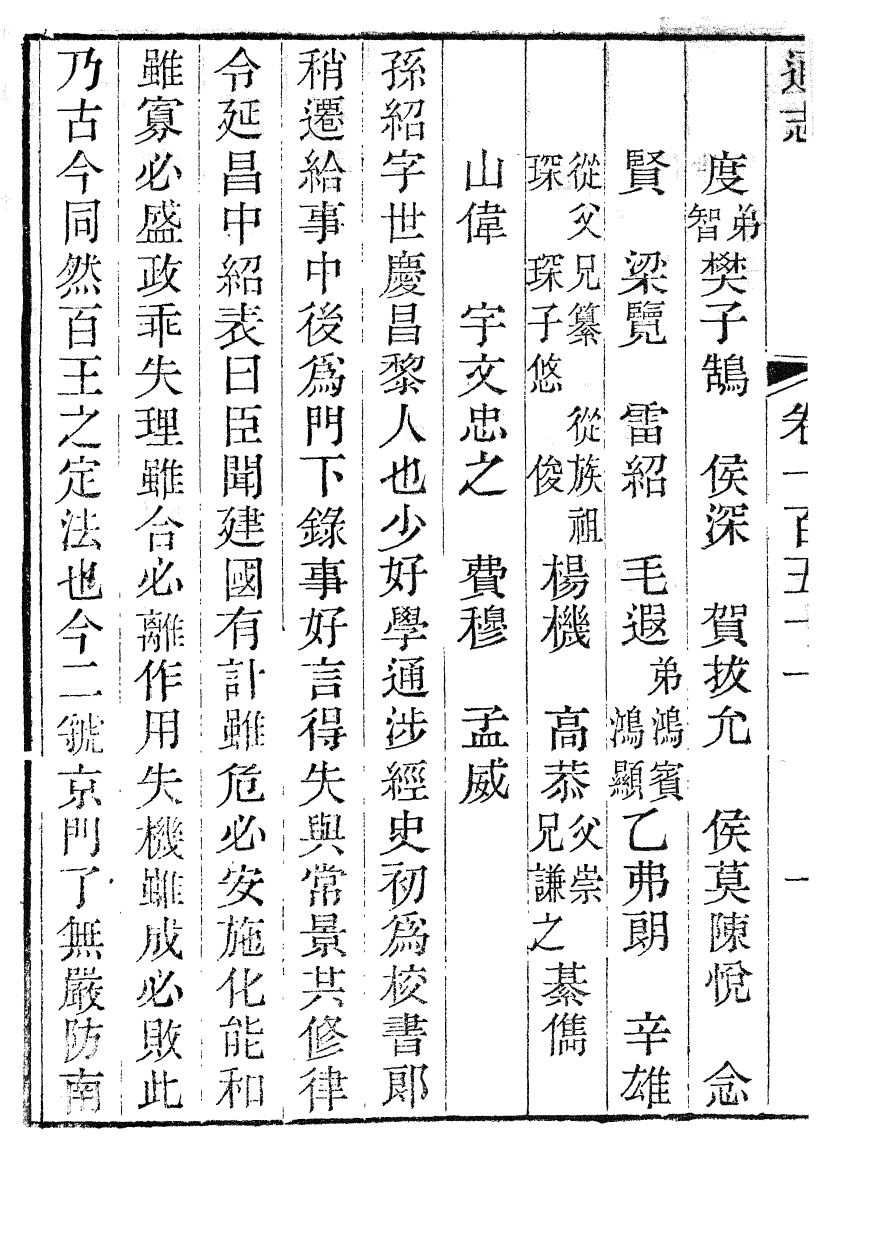 通志 卷一百五十一 一
度 弟智 樊子鵠 侯深 賀拔允 侯莫陳悅 念
賢 梁覽 雷紹 毛遐 弟鴻賓 鴻顯 乙弗朗 辛雄
從父兄纂 琛 琛子悠 從族祖俊 楊機 高恭 父崇 兄謙之 綦儁
山偉 宇文忠之 費穆 孟威
孫紹字世慶昌黎人也少好學通涉經史初爲校書郎
稍遷給事中後爲門下錄事好言得失與常景共修律
令延昌中紹表曰臣聞建國有計雖危必安施化能和
雖寡必盛政乖失理雖合必離作用失機雖成必敗此
乃古今同然百王之定法也今二虢京門了無嚴防南